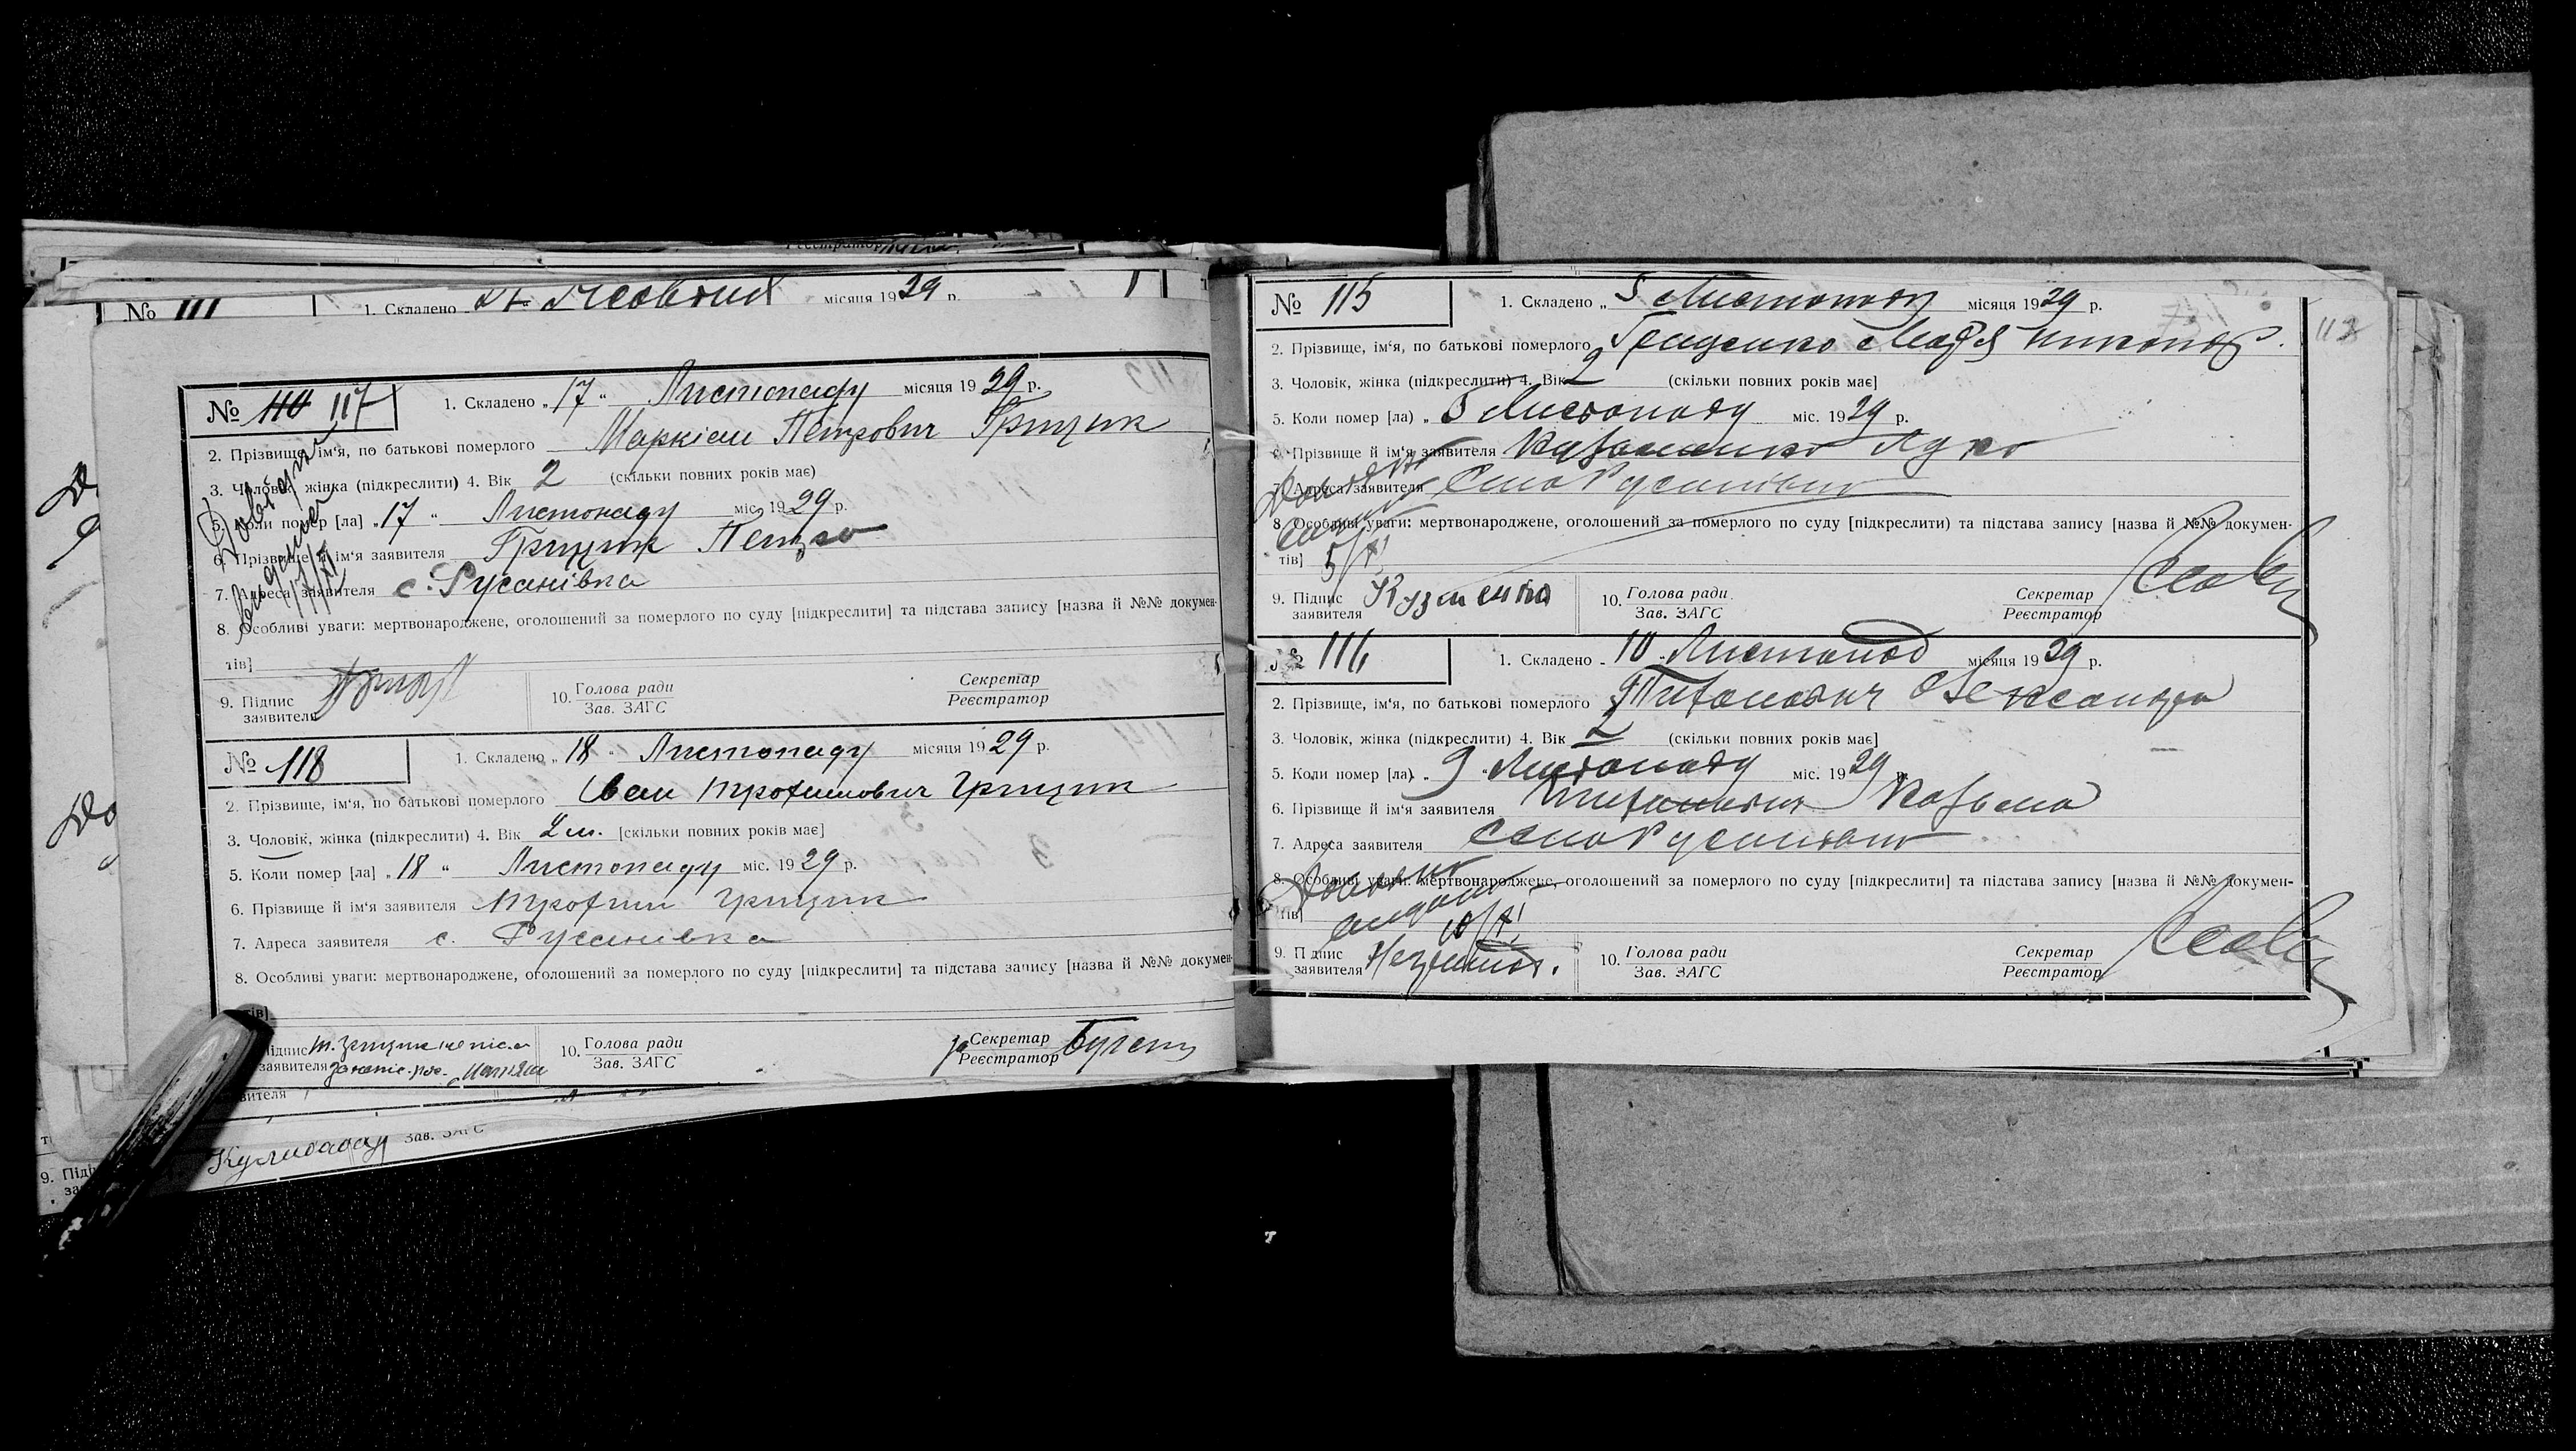 Реєстратор
№ 111 1. Складено місяця 1929 р.
№ 110 117 1. Складено „17“ Листопаду місяця 1929 р.
2. Прізвище, ім‘я, по батькові померлого Маркіян Петрович Грицик
3. Чоловік, жінка (підкреслити) 4. Вік 2 (скільки повних років має)
5. Коли помер [ла] „17“ Листопаду міс. 1929 р.
6. Прізвище й ім‘я заявителя Грицик Петро
7. Адреса заявителя с. Русанівка
Довідку видано 17/XI
8. Особливі уваги: мертвонароджене, оголошений за померлого по суду [підкреслити] та підстава запису [назва й №№ докумен-
тів]
9. Підпис заявителя 10. Голова ради Зав. ЗАГС Секретар Реєстратор
№ 118 1. Складено „18“ Листопаду місяця 1929 р.
2. Прізвище, ім‘я, по батькові померлого Іван Трохимович Грицик
3. Чоловік, жінка (підкреслити) 4. Вік 2 м. [скільки повних років має]
5. Коли помер [ла] „18“ Листопаду міс. 1929 р.
6. Прізвище й ім‘я заявителя Трохим Грицик
7. Адреса заявителя с. Русанівка
8. Особливі уваги: мертвонароджене, оголошений за померлого по суду [підкреслити] та підстава запису [назва й №№ докумен-
тів]
підпис заявителя Т. Грицик 10. Голова ради Зав. ЗАГС Секретар Реєстратор
вителя
Зав. ЗАГС
9. Підп
№ 115 1. Складено „5 Листопаду місяця 1929 р.
113
2. Прізвище, ім‘я, по батькові померлого Гриценко
3. Чоловік, жінка (підкреслити) 4. Вік 2 (скільки повних років має]
5. Коли помер [ла) „5 Листопаду міс. 1929 р.
6. Прізвище й ім‘я заявителя
7. Адреса заявителя Село Русанівка
8. Особливі уваги: мертвонароджене, оголошений за померлого по суду [підкреслити) та підстава запису [назва й №№ докумен-
тів] 5/XI
9. Підпис заявителя 10. Голова ради. Зав. ЗАГС Секретар Реєстратор
№ 116 1. Складено „10 „Листопад місяця 1929 р.
2. Прізвище, ім‘я, по батькові померлого Олександра
3. Чоловік, жінка (підкреслити) 4. Вік 2 (скільки повних років має]
5. Коли помер [ла) „9 „Листопаду міс. 1929 р.
6. Прізвище й ім‘я заявителя
7. Адреса заявителя Село Русанівка
8. Особливі уваги: мертвонароджене, оголошений за померлого по суду [підкреслити] та підстава запису [назва й №№ докумен-
тів] видано 10/XI
9. Підпис заявителя 10. Голова ради Зав. ЗАГС Секретар Реєстратор